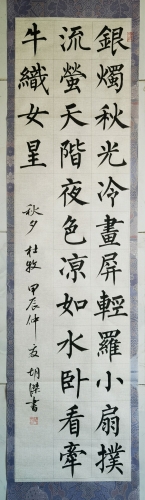 銀燭秋光冷畫屏輕羅小扇撲
流螢天階夜色涼如水臥看牽
牛織女星
秋夕 杜牧 甲辰仲夏 胡傑書